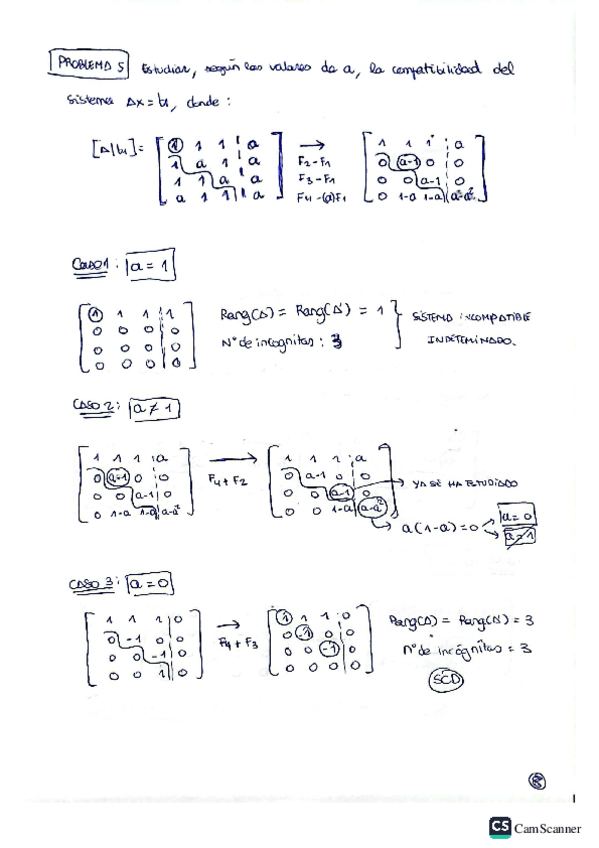 PROBLEMA 5 Estudiar, según los valores de a, la compatibilidad del
sistema Ax = b, donde:
[A|b] = [ 1 1 1 | a ] → [ 1 1 1 | a ]
1 a 1 | a F2-F1 0 a-1 0 | 0
1 1 a | a F3-F1 0 0 a-1 | 0
a 1 1 | a F4-(a)F1 0 1-a 1-a | a-a²
Caso 1: a = 1
1 1 1 | 1
0 0 0 | 0
0 0 0 | 0
0 0 0 | 0
Rang(A) = Rang(A') = 1
Nº de incognitas: 3
SISTEMA INCOMPATIBLE
INDETEMINADO.
CASO 2: a ≠ 1
1 1 1 | a → 1 1 1 | a
0 a-1 0 | 0 F4+F2 0 a-1 0 | 0
0 0 a-1 | 0 0 0 a-1 | 0 → YA SE HA ESTUDIADO
0 1-a 1-a | a-a² 0 0 1-a | a-a² → a(1-a)=0 a=0
a=1
CASO 3: a = 0
1 1 1 | 0 → 1 1 1 | 0
0 -1 0 | 0 F4+F3 0 -1 0 | 0
0 0 -1 | 0 0 0 -1 | 0
0 0 1 | 0 0 0 0 | 0
Rang(A) = Rang(A') = 3
nº de incógnitas = 3
SCD
CS CamScanner